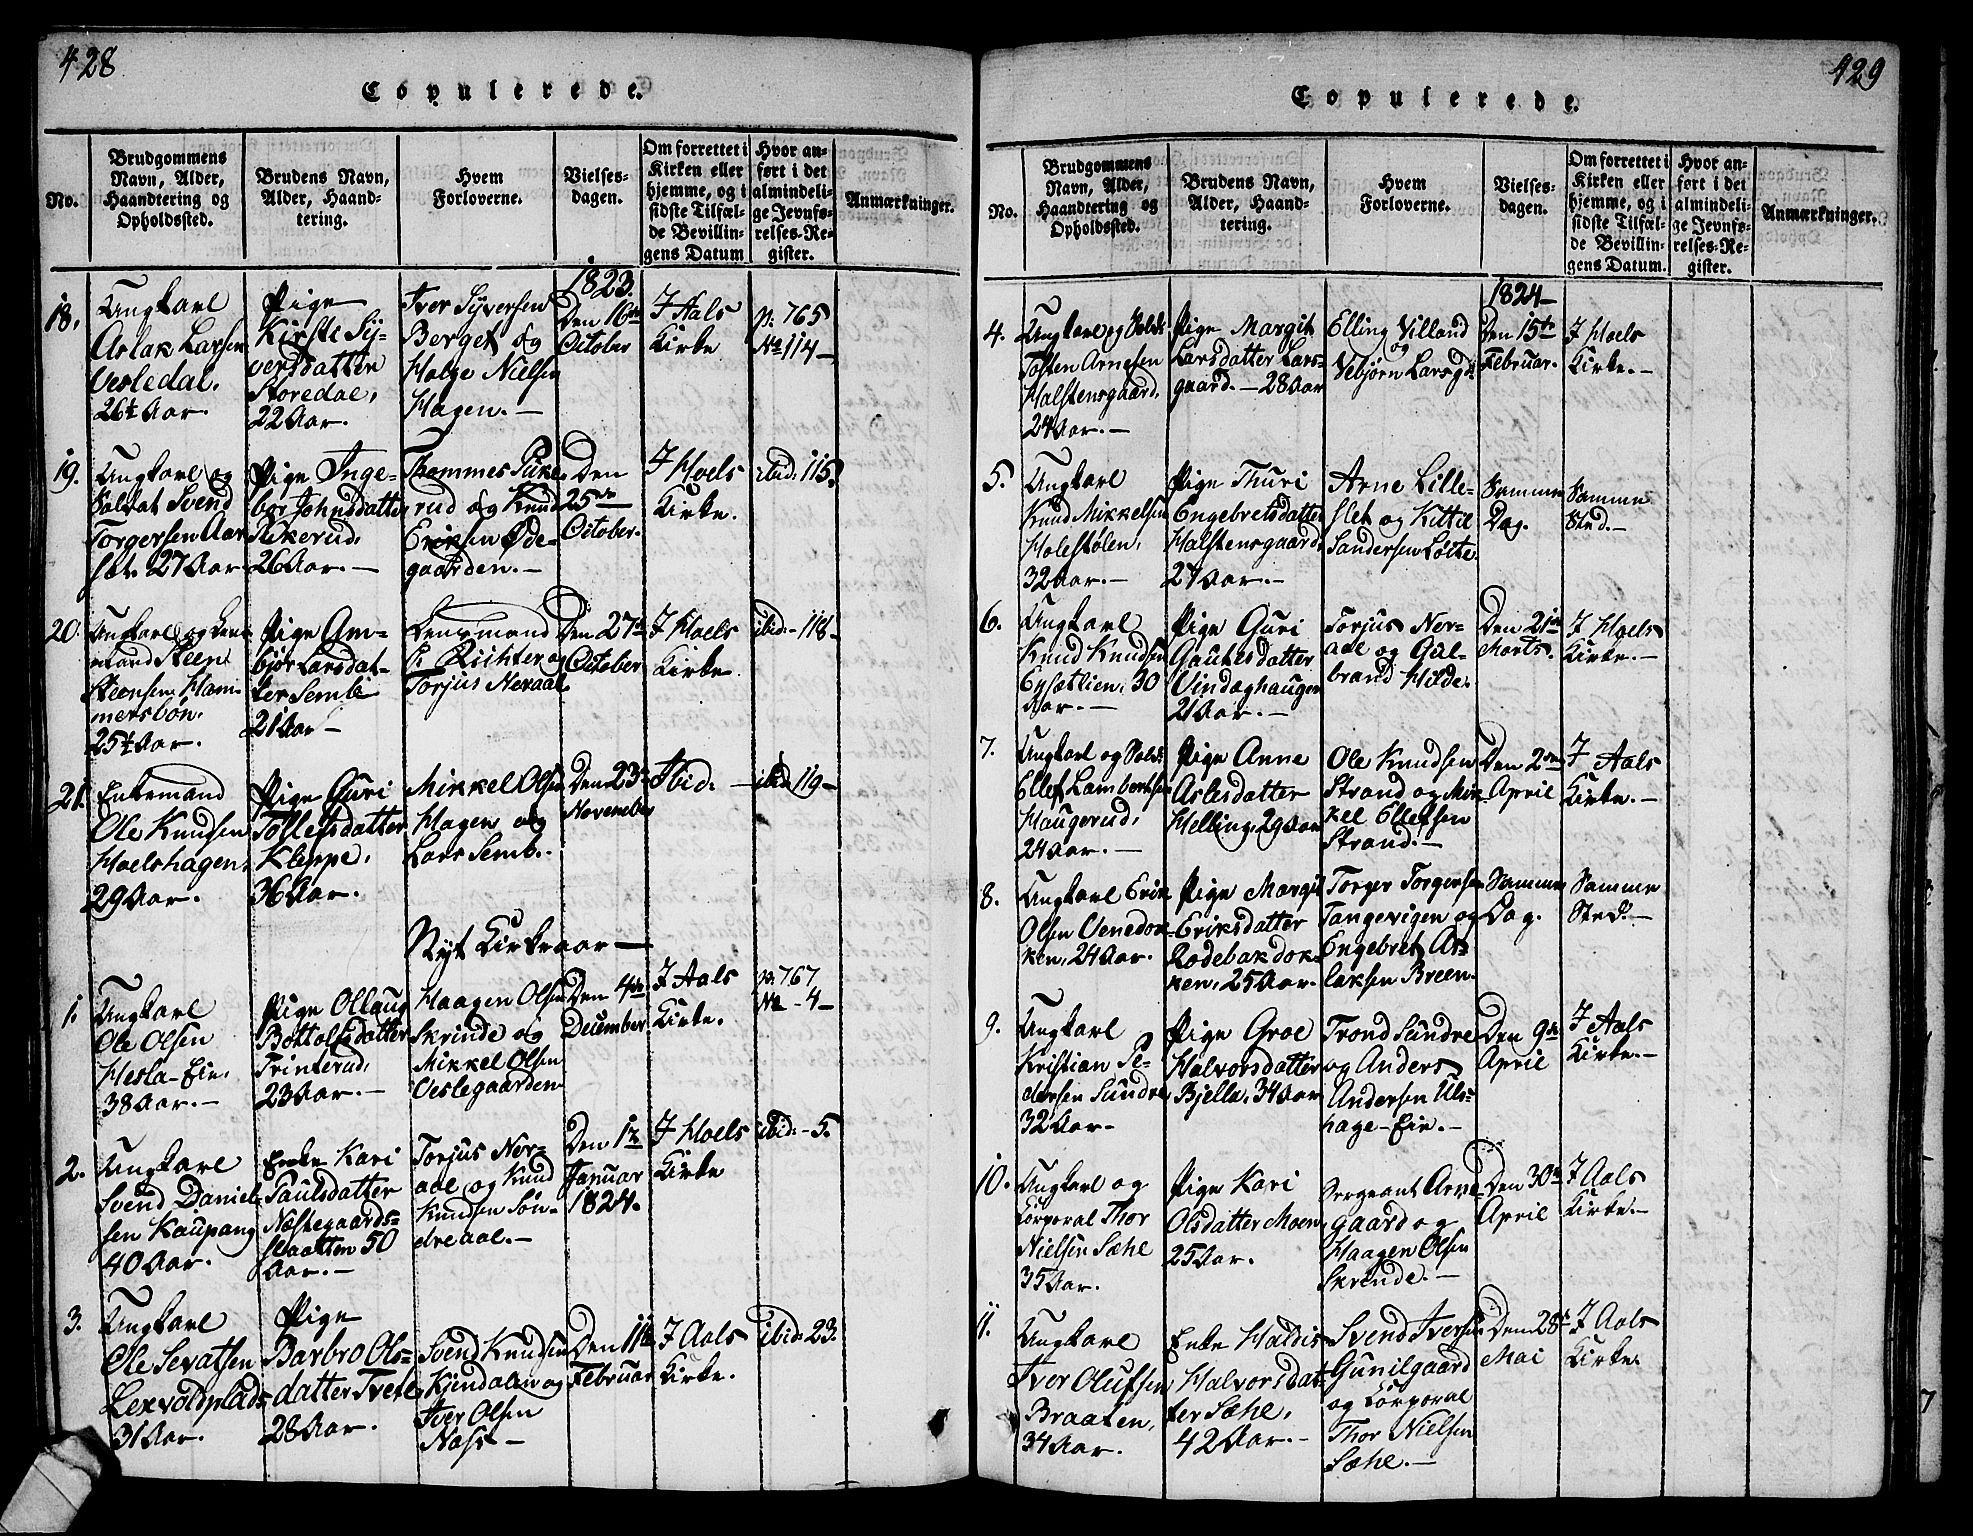 428
Copulerede.
No.
Brudgommens
Navn, Alder,
Haandtering og
Opholdssted.
Brudens Navn,
Alder, Haand-
tering.
Hvem
Forloverne.
Vielses-
dagen.
Om forrettet i
Kirken eller
hjemme, og i
sidste Tilfæl-
de Bevillin-
gens Datum
Hvor an-
ført i det
almindeli-
ge Jevnfø-
relses-Re-
gister.
Anmærkninger.
1823.
18.
Ungkarl
Aslak Larsen
Vesledal.
26½ Aar.
Pige
Kirste Sy-
versdatter
Storedal,
22 Aar.
Iver Syversen
Berget og
Holge Nielsen
Hagen. —
Den 16de
October
I Aals
Kirke
p. 765
No 114 —
19.
Ungkarl og
Soldat Svend
Torgersen Aar
set. 27 Aar
Pige Inge-
bor Johnsdatter
Pukerud,
26 Aar. —
Thommes Puke
rud og Knud
Eriksen Øde-
gaarden. —
Den
25de
October.
I Hoels
Kirke.
ibid: 115.
20.
Ungkarl og Lens
mand Steen
Steensen Ham
mersbøn.
25½ Aar.
Pige Am-
bjør Larsdat-
ter Semb
21 Aar —
Lensmand
Richter og
Torjus Noraal
Den 27de
October
I Hoels
Kirke.
ibid: - 118 -
21.
Enkemand
Ole Knudsen
Hoelshagen,
29 Aar.
Pige Guri
Tollefsdatter
Kleppe,
36 Aar.
Mikkel Olsen
Hagen og
Lars Semb.
Den 23de
November
Ibid. —
ibid 119 —
Nyt Kirkeaar —
1.
Ungkarl
Ole Olsen
Hesla-Eie,
38 Aar. —
Pige Ollaug
Bottolfsdatter
Trinterud,
23 Aar. —
Haagen Olsen
Skrinde og
Mikkel Olsen
Veslegaarden
Den 4de
December
I Aals
Kirke.
p. 767
No - 4 —
2.
Ungkarl
Svend Daniel-
sen Kaupang
40 Aar.
Enke Kari
Paulsdatter
Næstegaards-
slaatten 50
Aar. —
Torjus Nor-
aal og Knud
Knudsen Søn-
dreaal. —
Den 1te
Januar
1824.
I Hoels
Kirke
ibid: - 5.
3.
Ungkarl
Ole Sevatsen
Lexvoldplads
31 Aar.
Pige
Barbro Ols-
datter Tvete
28 Aar.
Svend Knudsen
Kjendalen og
Iver Olsen
Næss —
Den 11te
Februar
I Aals
Kirke.
ibid: 23.
429
Copulerede.
No.
Brudgommens
Navn, Alder,
Haandtering og
Opholdssted.
Brudens Navn,
Alder, Haand-
tering.
Hvem
Forloverne.
Vielses-
dagen.
Om forrettet i
Kirken eller
hjemme, og i
sidste Tilfæl-
de Bevillin-
gens Datum.
Hvor an-
ført i det
almindeli-
ge Jevnfø-
relses-Re-
gister.
Anmærkninger.
1824 —
4.
Ungkarl og Soldt
Tosten Arnesen
Halstensgaard,
24 Aar. —
Pige Margit
Larsdatter Lars-
gaard. — 28 Aar
Elling Villand
og
Vebjørn Larsgd.
Den 15de
Februar.
I Hoels
Kirke. —
5.
Ungkarl
Knud Mikkelsen
Holestølen,
32 Aar. —
Pige Thuri
Engebretsdatter
Halstensgaard,
27 Aar. —
Arne Lille-
slet og Kittil
Sandersen Løtte
Samme
Dag.
Samme
Sted. —
6.
Ungkarl
Knud Knudsen
Gysætlien, 30
Aar. —
Pige Guri
Gautesdatter
Vindaghaugen
21 Aar. —
Torjus Nor-
aal og Gul-
brand Hilde.
Den 21de
Marts.
I Hoels
Kirke. —
7.
Ungkarl og Soldt
Ellef Lambertsen
Haugerud,
24 Aar. —
Pige Anne
Aslesdatter
Helling, 29 Aar
Ole Knudsen
Strand og Mik
kel Ellefsen
Strand. —
Den 2den
April
I Aals
Kirke. —
8.
Ungkarl Erik
Olsen Venedok-
ken, 24 Aar.
Pige Margit
Eriksdatter
Rodebakdok-
ken, 25 Aar.
Torger Torgersen
Tangevigen og
Engebret As-
laksen Breen.
Samme
Dag.
Samme
Sted. —
9.
Ungkarl
Kristian Pe-
dersen Sundre
32 Aar. —
Pige Groe
Halvorsdatter
Bjella, 34 Aar
Trond Sundre
og Anders
Andersen Uls-
hage-Eie. —
Den 9de
April
I Aals
Kirke. —
10.
Ungkarl og
Corporal Thor
Nielsen Sæhe
35 Aar.
Pige Kari
Olsdatter Moen,
25 Aar.
Sergeant Arne-
gaard og
Haagen Olsen
Skrinde. —
Den 30te
April
I Aals
Kirke. —
11.
Ungkarl
Iver Olufsen
Braaten,
34 Aar.
Enke Haldis
Halvorsdat-
ter Sæhe,
42 Aar. —
Svend Iversen
Gunilgaard
og Corporal
Thor Nielsen
Sæhe. —
Den 28de
Mai
I Aals
Kirke.